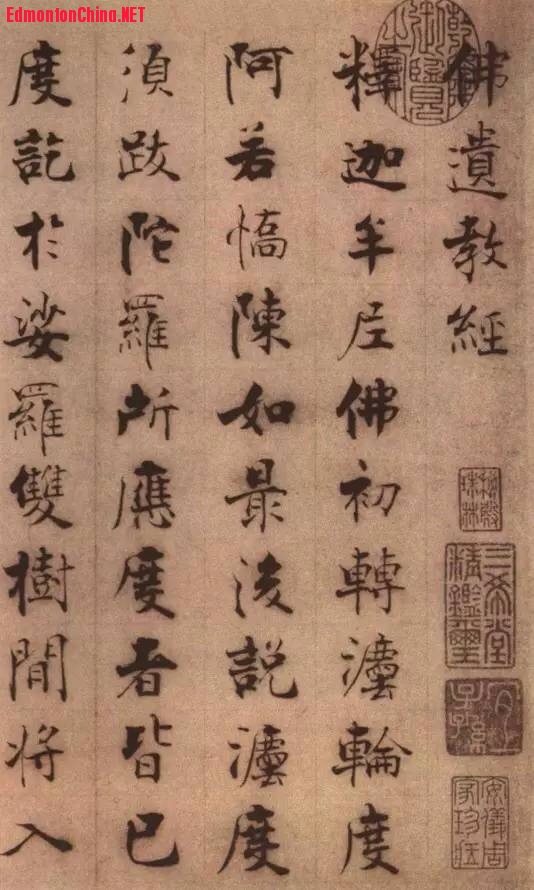 EdmontonChina.NET
佛遺教經
釋迦牟尼佛初轉灋輪度
阿若憍陳如最後說灋度
須跋陀羅所應度者皆已
度訖於娑羅雙樹間將入
乾隆御覽之寶
秘殿珠林
三希堂精鑑璽
宜子孫
安儀周家珍藏